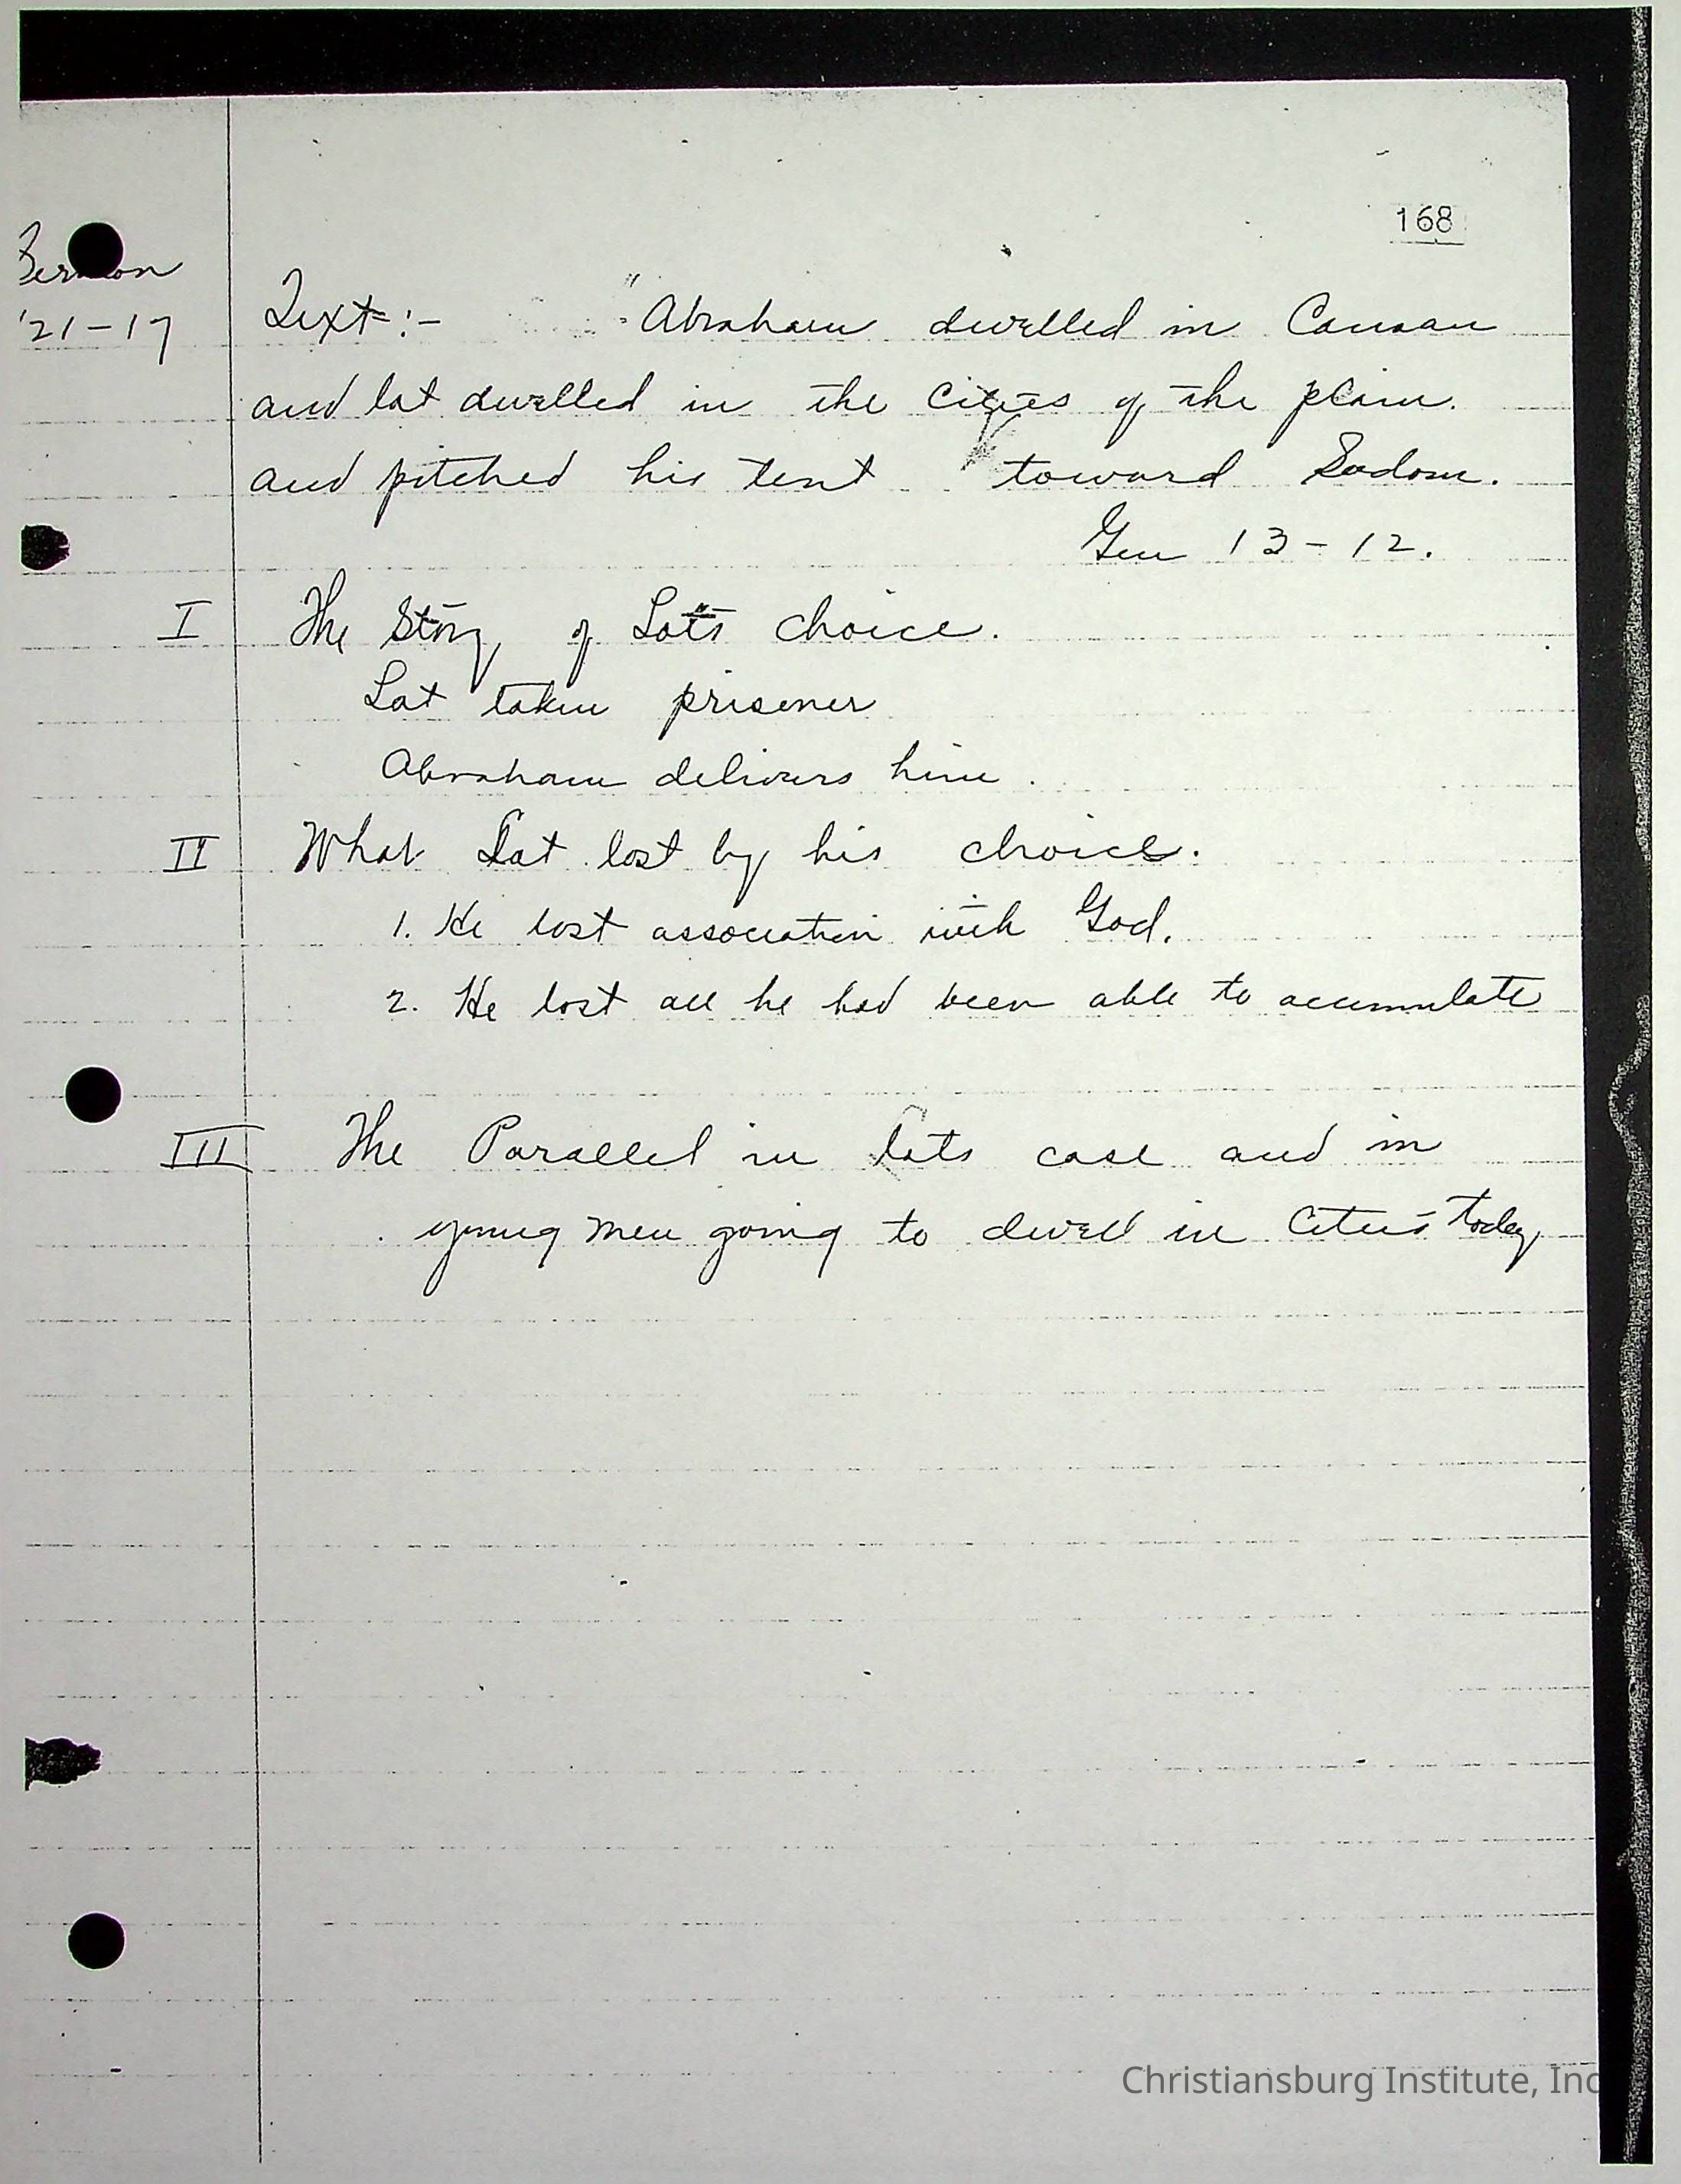 168
Sermon
'21-17
Text:- "Abraham dwelled in Canaan
and lot dwelled in the cities of the plain.
and pitched his tent toward Sodom.
Gen 13-12.
I The Story of Lot's choice.
Lot taken prisoner
Abraham delivers him.
II What Lot lost by his choice.
1. He lost association with God.
2. He lost all he had been able to accumulate
III The Parallel in Lots case and in
young men going to dwell in Cities today
Christiansburg Institute, Inc